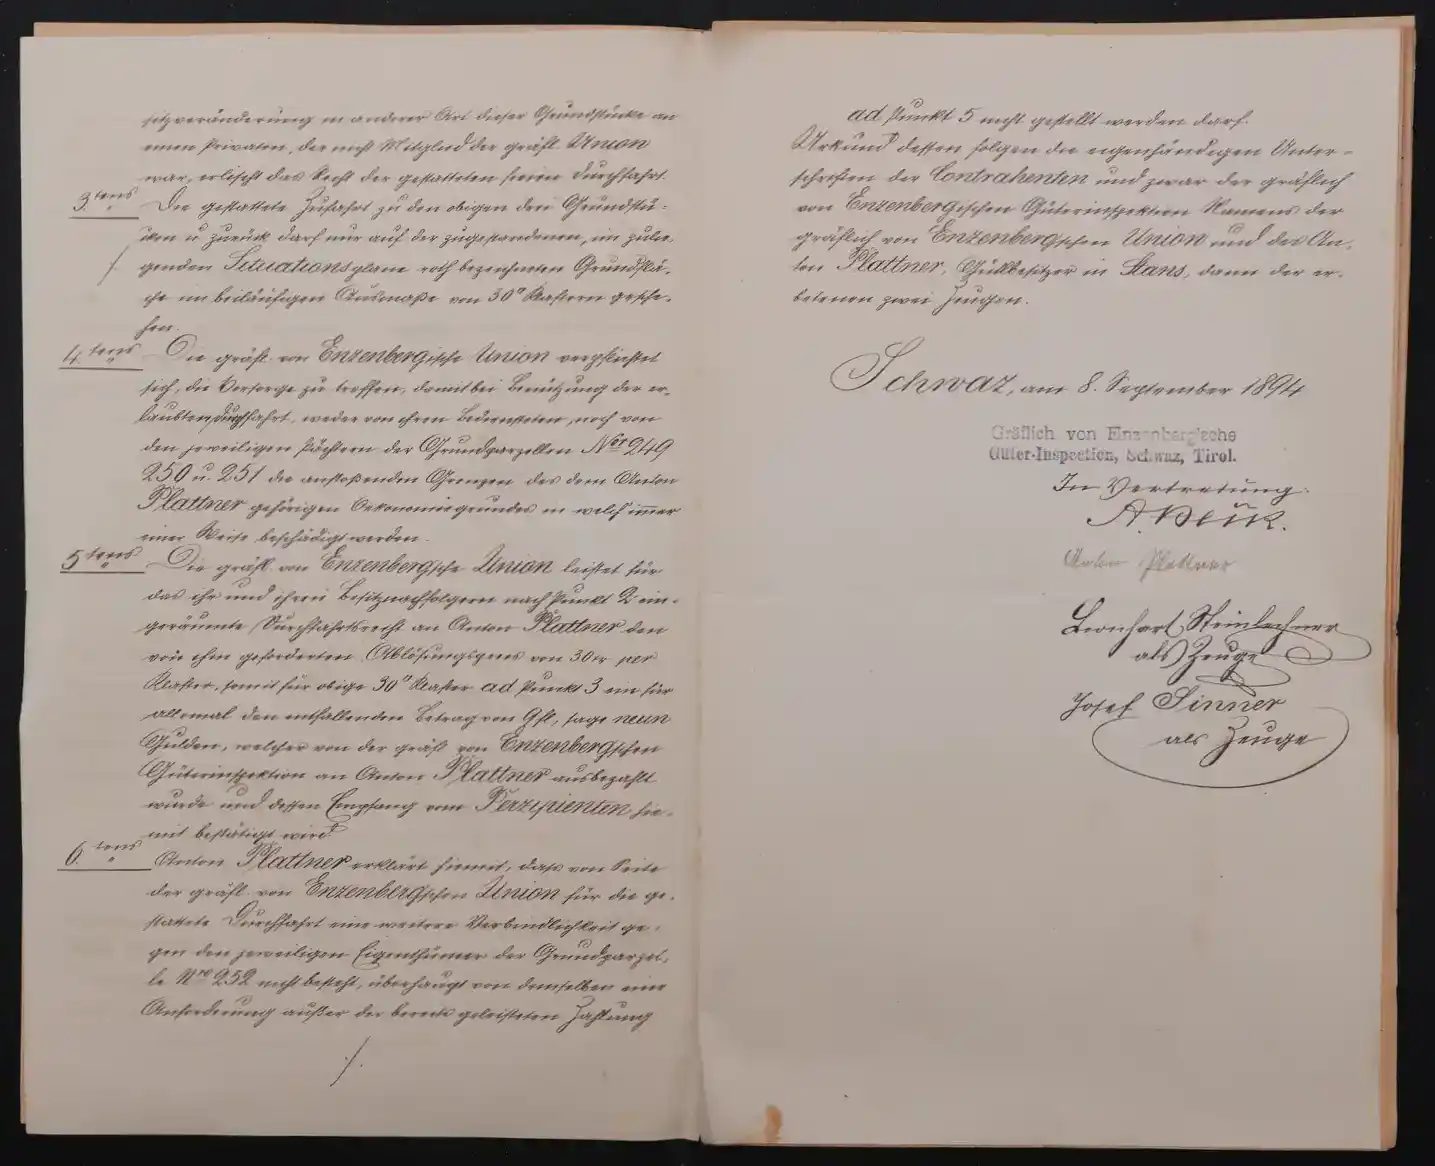 sitzveränderung in anderer Art dieser Grundstücke an
einen Privaten, der nicht Mitglied der gräfl. Union
war, erlischt das Recht der gestatteten freien Durchfahrt.
3.tens Die gestattete Zufahrt zu den obigen drei Grundstü-
cken u. zurück darf nur auf der zugestandenen, im zulie-
genden Situationsplane roth bezeichneten Grundflä-
che im beiläufigen Ausmaße von 30° Klaftern gesche-
hen.
4.tens Die gräfl. von Enzenberg'sche Union verpflichtet
sich, die Vorsorge zu treffen, damit bei Benützung der er-
laubten Durchfahrt, weder von ihren Bediensteten, noch von
den jeweiligen Pächtern der Grundparzellen Nor 249
250 u. 251 die anstoßenden Grenzen des dem Anton
Plattner gehörigen Oekonomiegrundes in welch' immer
einer Weise beschädigt werden.
5tens Die gräfl. von Enzenberg'sche Union leistet für
das ihr und ihren Besitznachfolgern nach Punkt 2 ein-
geräumte Durchfahrtsrecht an Anton Plattner den
von ihm geforderten Ablösungspreis von 30 kr per
Klafter, somit für obige 30° Klafter ad Punkt 3 ein für
allemal den entfallenden Betrag von 9 fl, sage neun
Gulden, welcher von der gräfl. von Enzenberg'schen
Güterinspektion an Anton Plattner ausbezahlt
wurde und dessen Empfang vom Perzipienten hie-
mit bestätigt wird.
6.tens Anton Plattner erklärt hiemit, dass von Seite
der gräfl. von Enzenberg'schen Union für die ge-
stattete Durchfahrt eine weitere Verbindlichkeit ge-
gen den jeweiligen Eigenthümer der Grundparzel-
le Nro 252 nicht besteht, überhaupt von demselben eine
Anforderung außer der bereits geleisteten Zahlung
./.
ad Punkt 5 nicht gestellt werden darf.
Urkund dessen folgen die eigenhändigen Unter-
schriften der Contrahenten und zwar der gräflich
von Enzenberg'ischen Güterinspektion Namens der
gräflich von Enzenberg'schen Union und des An-
ton Plattner, Gutsbesitzer in Stans, dann der er-
betenen zwei Zeugen.
Schwaz, am 8. September 1894
Gräflich von Enzenberg'sche
Güter-Inspection, Schwaz, Tirol.
In Vertretung:
Anton Plattner
Leonhart Steinlechner
als Zeuge
Josef Sinner
als Zeuge